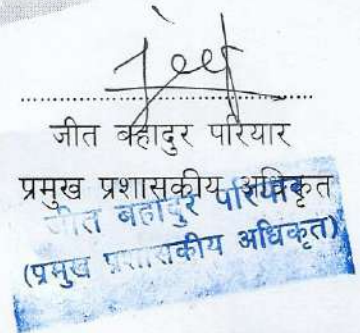 Jeet
जीत बहादुर परियार
प्रमुख प्रशासकीय अधिकृत
जीत बहादुर परियार
(प्रमुख प्रशासकीय अधिकृत)